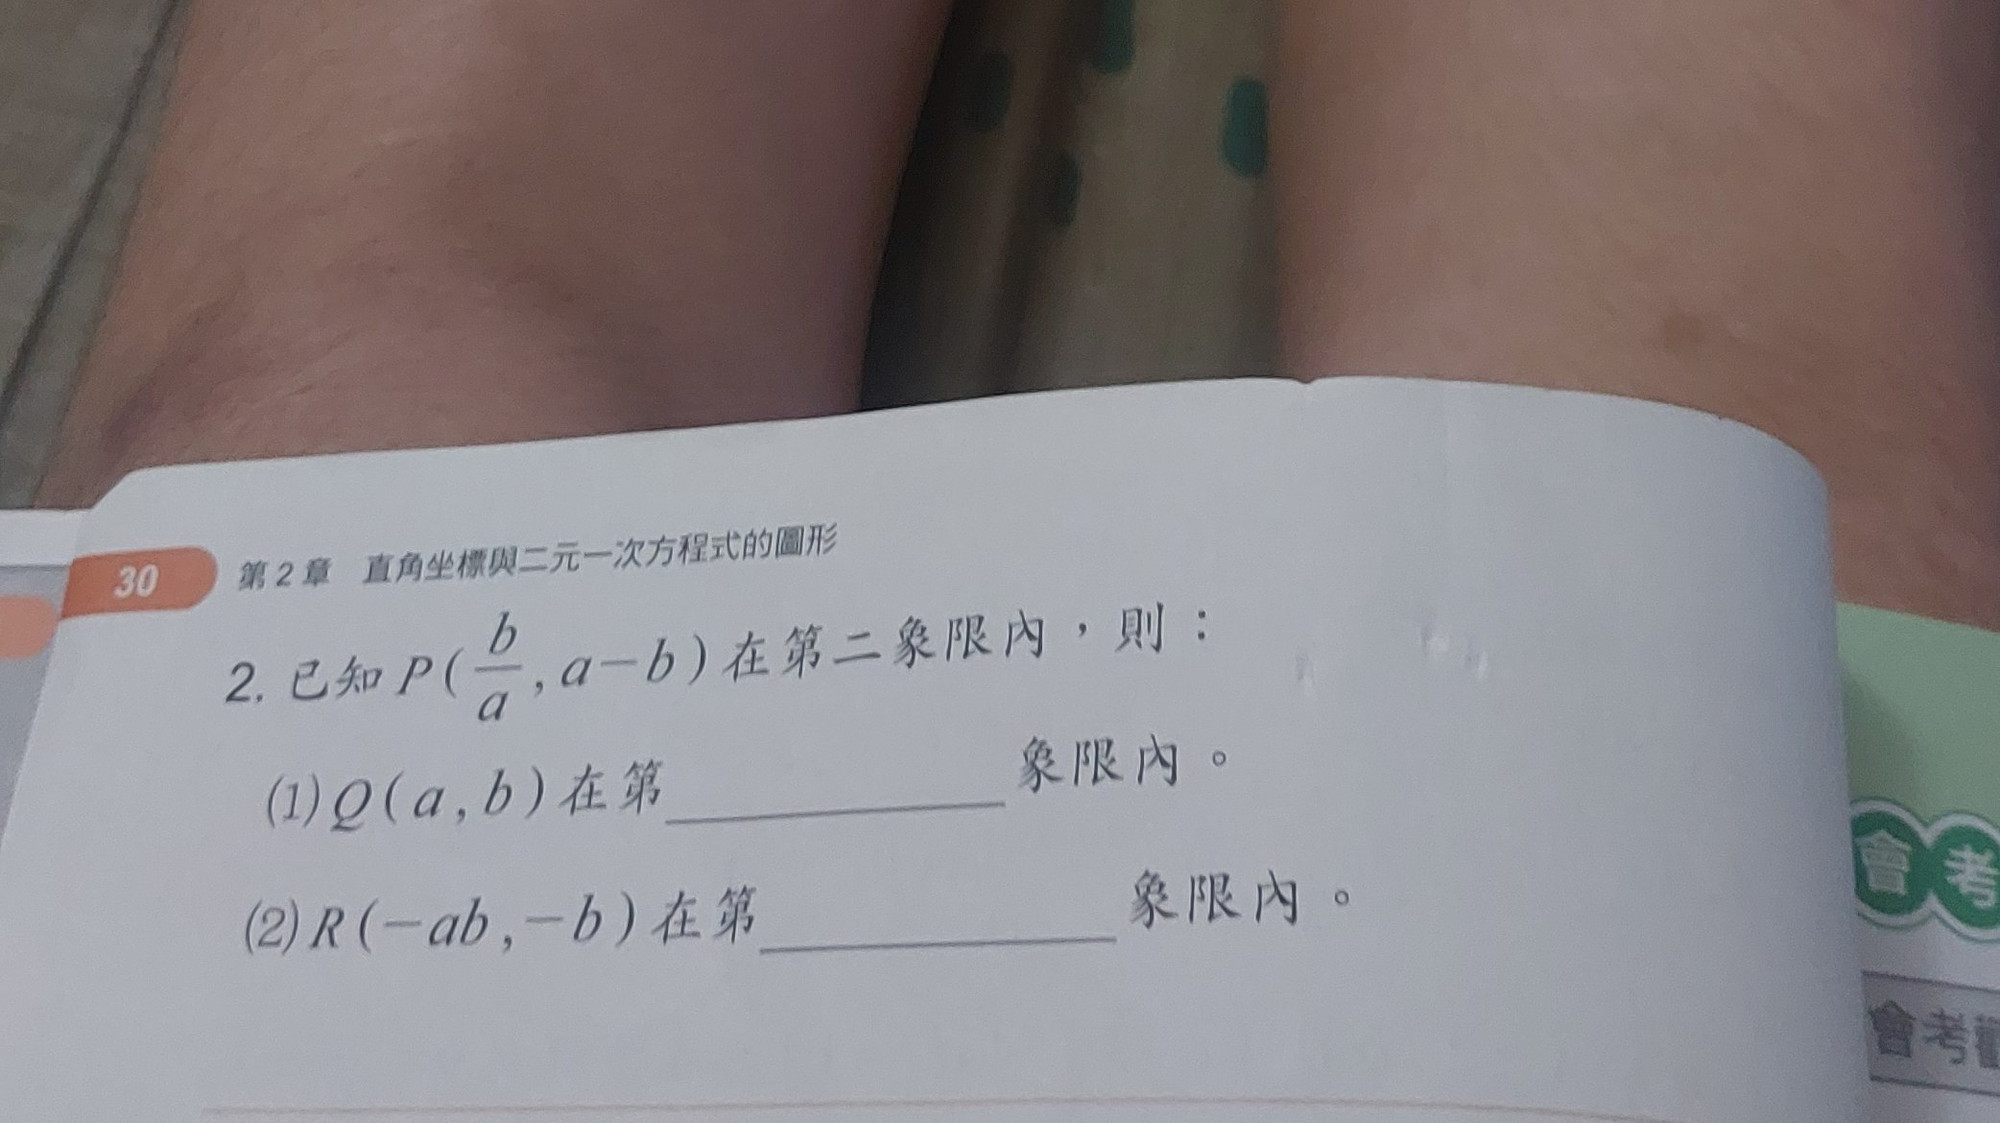 30 第2章 直角坐標與二元一次方程式的圖形
2. 已知 P(b/a, a-b) 在第二象限內，則：
(1) Q(a, b) 在第__________象限內。
(2) R(-ab, -b) 在第__________象限內。
會考
會考